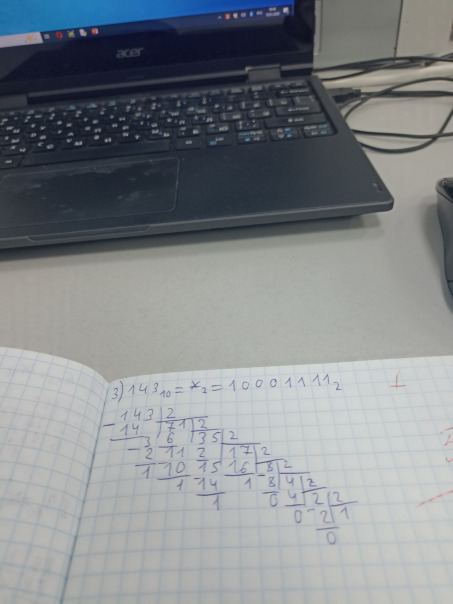 acer
3) 143₁₀ = x₂ = 10001111₂
143 2
14 71 2
3 6 35 2
2 11 2 17 2
1 10 15 16 8 2
1 14 1 8 4 2
1 0 4 2 2
0 2 1
0